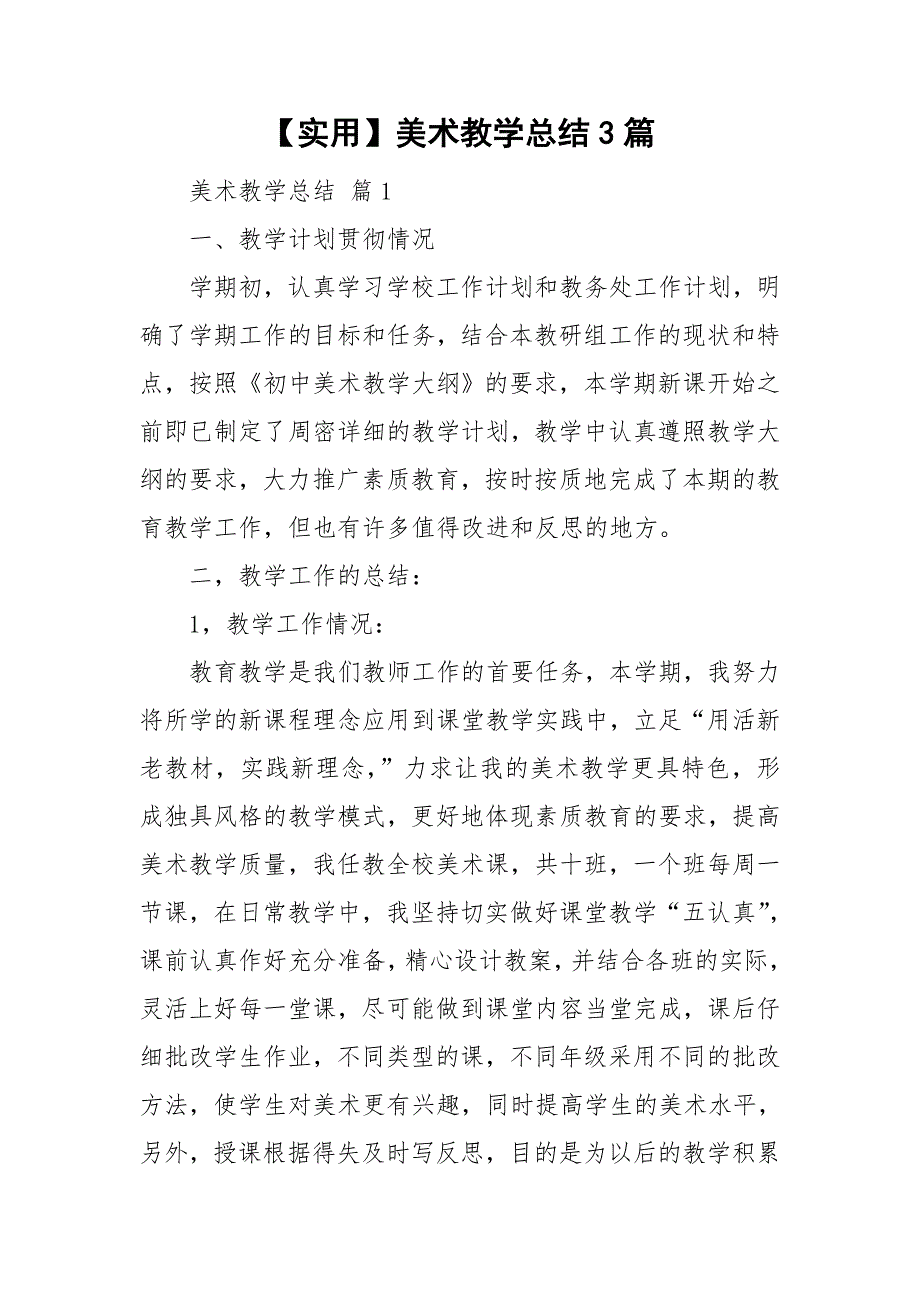 【实用】美术教学总结3篇
美术教学总结 篇1
一、教学计划贯彻情况
学期初，认真学习学校工作计划和教务处工作计划，明
确了学期工作的目标和任务，结合本教研组工作的现状和特
点，按照《初中美术教学大纲》的要求，本学期新课开始之
前即已制定了周密详细的教学计划，教学中认真遵照教学大
纲的要求，大力推广素质教育，按时按质地完成了本期的教
育教学工作，但也有许多值得改进和反思的地方。
二，教学工作的总结：
1，教学工作情况：
教育教学是我们教师工作的首要任务，本学期，我努力
将所学的新课程理念应用到课堂教学实践中，立足“用活新
老教材，实践新理念，”力求让我的美术教学更具特色，形
成独具风格的教学模式，更好地体现素质教育的要求，提高
美术教学质量，我任教全校美术课，共十班，一个班每周一
节课，在日常教学中，我坚持切实做好课堂教学“五认真”，
课前认真作好充分准备，精心设计教案，并结合各班的实际，
灵活上好每一堂课，尽可能做到课堂内容当堂完成，课后仔
细批改学生作业，不同类型的课，不同年级采用不同的批改
方法，使学生对美术更有兴趣，同时提高学生的美术水平，
另外，授课根据得失及时写反思，目的是为以后的教学积累